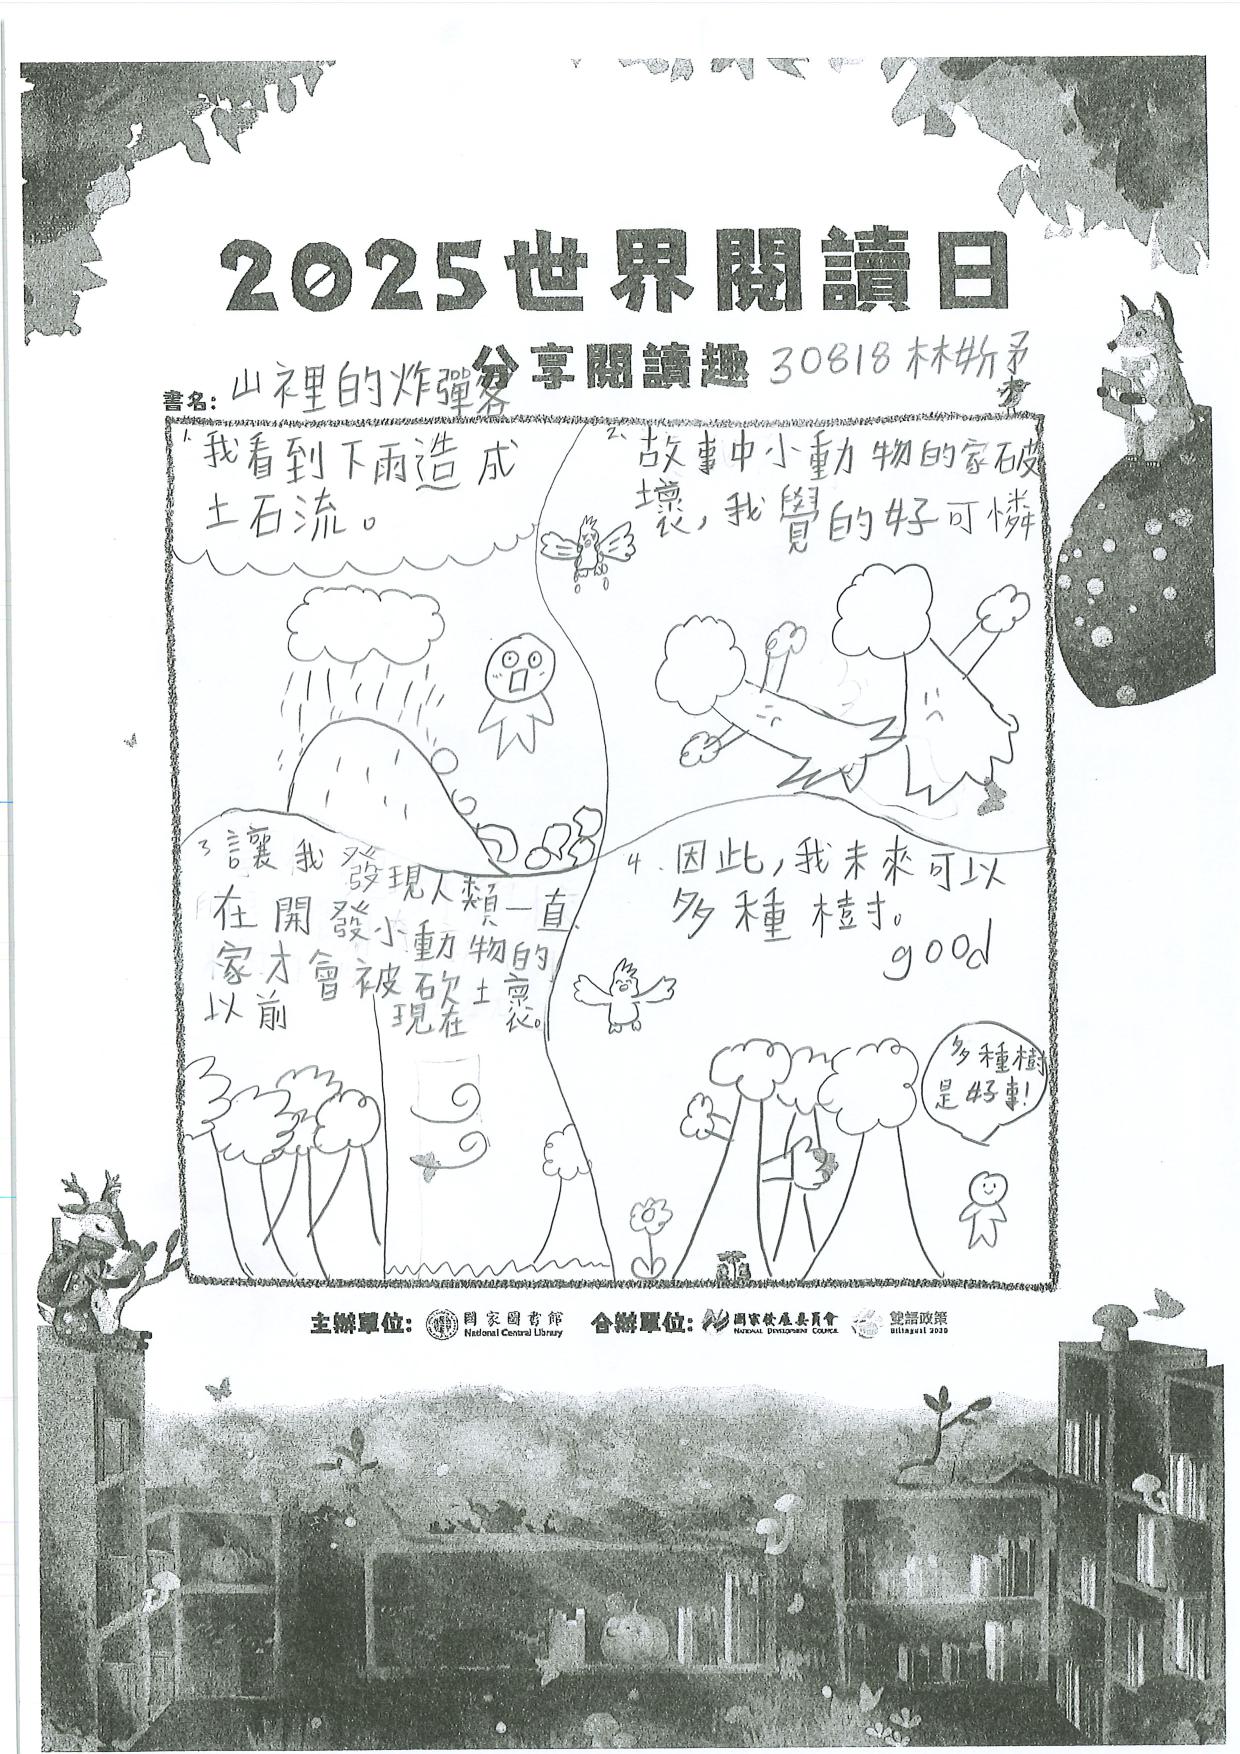 2025世界閱讀日
分享閱讀趣
30818 林妡矛
書名: 山裡的炸彈客
1. 我看到下雨造成
土石流。
2. 故事中小動物的家破
壞,我覺的好可憐
3 讓我發現人類一直
在開發小動物的
家才會被砍土裹。
以前
現在
4. 因此,我未來可以
多種樹。
good
多種樹
是好事!
主辦單位: 國家圖書館
National Central Library
合辦單位: 國家發展委員會
National Development Council
雙語政策
Bilingual 2030